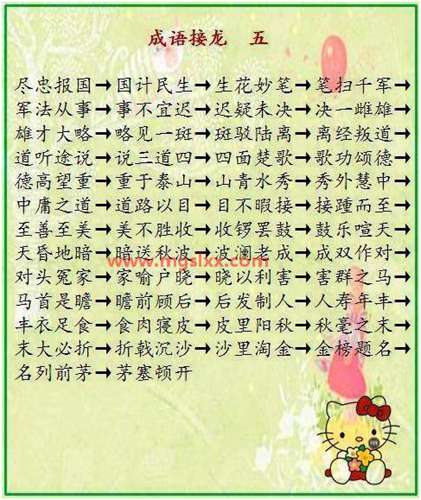 成语接龙 五
尽忠报国→国计民生→生花妙笔→笔扫千军→
军法从事→事不宜迟→迟疑未决→决一雌雄→
雄才大略→略见一斑→斑驳陆离→离经叛道→
道听途说→说三道四→四面楚歌→歌功颂德→
德高望重→重于泰山→山青水秀→秀外慧中→
中庸之道→道路以目→目不暇接→接踵而至→
至善至美→美不胜收→收锣罢鼓→鼓乐喧天→
天昏地暗→暗送秋波→波澜老成→成双作对→
www.mgslxx.com
对头冤家→家喻户晓→晓以利害→害群之马→
马首是瞻→瞻前顾后→后发制人→人寿年丰→
丰衣足食→食肉寝皮→皮里阳秋→秋毫之末→
末大必折→折戟沉沙→沙里淘金→金榜题名→
名列前茅→茅塞顿开